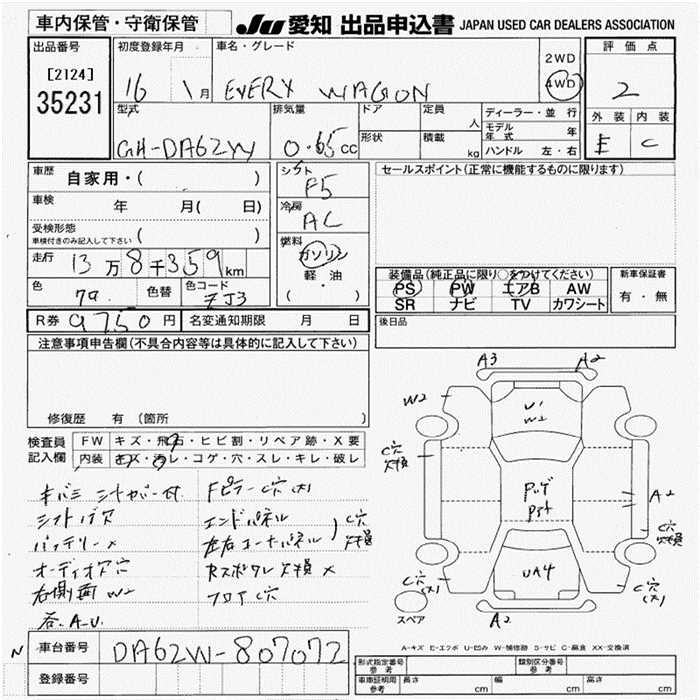 車内保管・守衛保管
JU 愛知 出品申込書 JAPAN USED CAR DEALERS ASSOCIATION
出品番号
[2124]
35231
初度登録年月
16 1月
車名・グレード
EVERY WAGON
2WD
4WD
評価点
2
外装 内装
E C
型式
GH-DA62W
排気量
0.65cc
ドア
形状
定員
人
積載
kg
ディーラー・並行
モデル年式 年
ハンドル 左・右
車歴
自家用・( )
車検
年 月( 日)
受検形態
車検付きのみ記入して下さい ( )
走行
13万8千359km
色
色替
色コード
ZJ3
シフト
F5
冷房
AC
燃料
ガソリン
軽・油
( ・ )
セールスポイント(正常に機能するものに限ります)
装備品(純正品に限り○をつけてください)
PS PW エアB AW
SR ナビ TV カワシート
新車保証書
有・無
R券 9750円
名変通知期限 月 日
後日品
注意事項申告欄(不具合内容等は具体的に記入して下さい)
修復歴 有(箇所 )
検査員記入欄
FW キズ・飛石・ヒビ割・リペア跡・X要
内装 キズ・汚レ・コゲ・穴・スレ・キレ・破レ
シフトブーツ穴
バッテリー×
オーディオ穴
右側面 W2
Fピラー C穴(大)
エンドパネル
左右コーナーパネル
C穴
欠損
フロア C穴
A3
A2
W2
U1
W2
C穴
欠損
A2
C穴
欠損
UA4
C穴(大)
C穴(大)
A2
スペア
A-キズ E-エクボ U-凹み W-補修跡 S-サビ C-腐食 XX-交換済
N
車台番号
DA62W-807072
登録番号
形式指定番号
参考
類別区分番号
参考
車庫証明用
参考
長さ cm
幅 cm
高さ cm